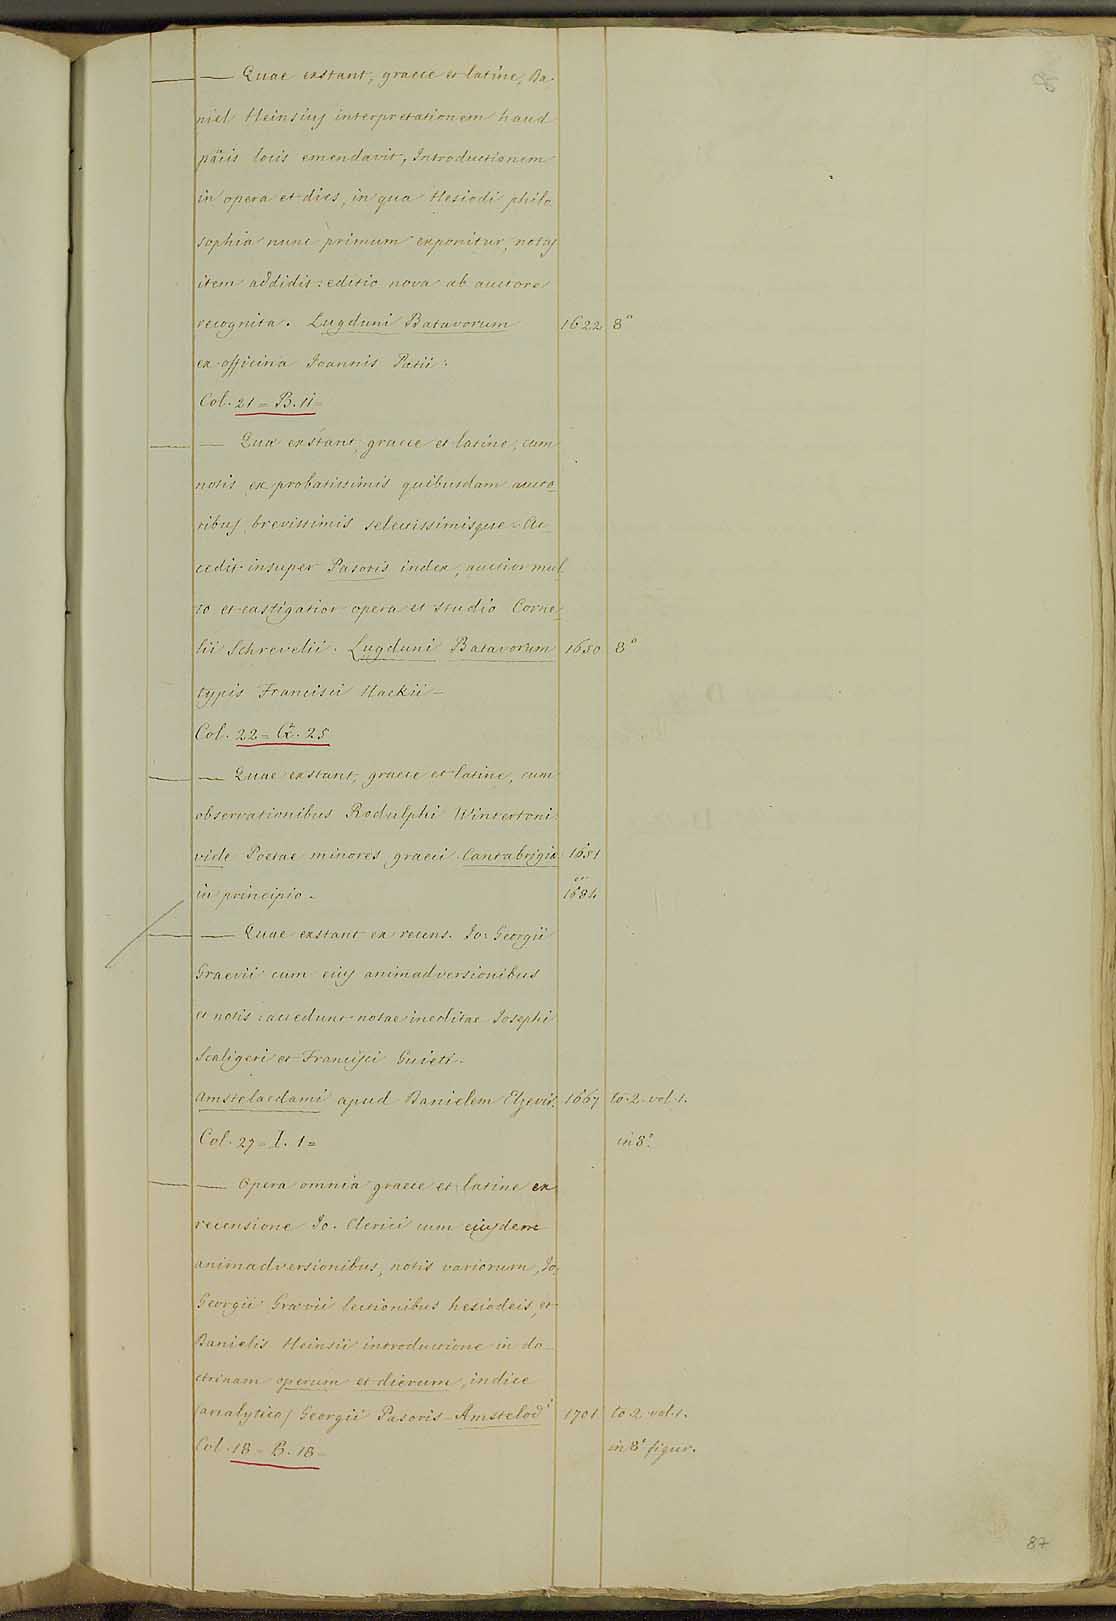 — — Quae exstant, graece et latine, Da-
niel Heinsius interpretationem haud
locis emendavit, Introductionem
in opera et dies, in qua Hesiodi philo
sophia nunc primum exponitur, notas
item addidit: editio nova ab auctore
recognita. Lugduni Batavorum 1622 8°
ex officina Ioannis Patii.
Col. 21 = B. 11 =
— — Quae exstant, graece et latine, cum
notis ex probatissimis quibusdam aucto-
ribus, brevissimis selectissimisque. Ac-
cedit insuper Pasoris index, auctior mul
to et castigatior opera et studio Corne-
lii Schrevelii. Lugduni Batavorum 1650 8°
typis Francisci Hackii -
Col. 22 = 25
— — Quae exstant, graece et latine, cum
observationibus Rodulphi Wintertoni
vide Poetae minores graeci. Cantabrigiae 1651
in principio. et 1684
— — Quae exstant ex recens. Io: Georgii
Graevii cum ejus animadversionibus
et notis: accedunt notae ineditae Josephi
Scaligeri et Francisci Guieti.
Amstelaedami apud Danielem Elzevir. 1667 to. 2. vol. 1.
Col. 27 = I. 1 = in 8°.
— — Opera omnia graece et latine ex
recensione Io. Clerici cum ejusdem
animadversionibus, notis variorum, Io.
Georgii Graevii lectionibus hesiodeis, et
Danielis Heinsii introductione in do-
ctrinam operum et dierum, indice
(analytico) Georgii Pasoris - Amstelod.i 1701 to 2 vol. 1.
Col. 18 = B. 18 = in 8° figur.
87